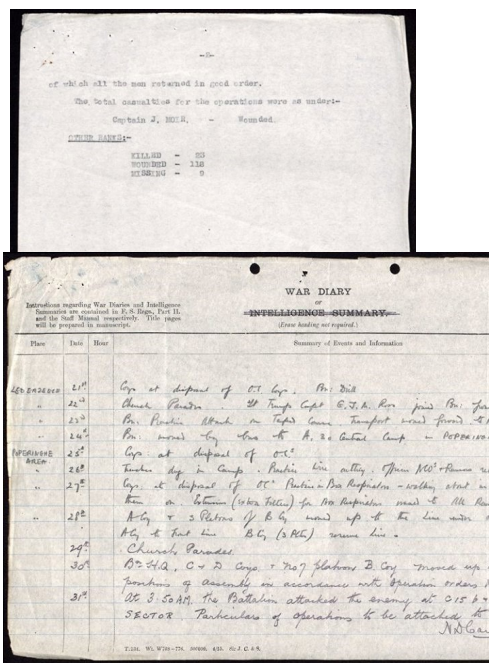 -2-
of which all the men returned in good order.
The total casualties for the operations were as under:-
Captain J. MOIR. - Wounded.
OTHER RANKS:-
KILLED -
WOUNDED - 118
MISSING - 9
WAR DIARY
OR
INTELLIGENCE SUMMARY.
(Erase heading not required.)
Instructions regarding War Diaries and Intelligence
Summaries are contained in F. S. Regs., Part II.
and the Staff Manual respectively. Title pages
will be prepared in manuscript.
Place Date Hour Summary of Events and Information
LEDERZEELE 21st Coys at disposal of O.C. Coys. Bn: Drill
" 22nd Church Parades Capt G.J.A. Ross joined Bn:
" 23rd Bn: Practice Attack on Taped Course Transport moved forward to
" 24th Bn: moved by bus to A.30 Central Camp in POPERINGHE
POPERINGHE
AREA 25th Coys at disposal of O.C.
" 26th in Camp. Officers NCOs &
" 27th Coys. at disposal of OC Practice in Box Respirators - walking
them on Extension for Box Respirators issued to All Ranks
" 28th A Coy & 2 Platoons of B Coy moved up to the Line under
A Coy to Front Line B Coy (2 Pltns) reserve line.
29th Church Parades
30th Bn H.Q., C & D Coys & No 7 platoon B. Coy moved up
positions of Assembly in accordance with Operation orders
31st At 3.50 AM. the Battalion attacked the enemy at C 15
SECTOR Particulars of operations to be attached to